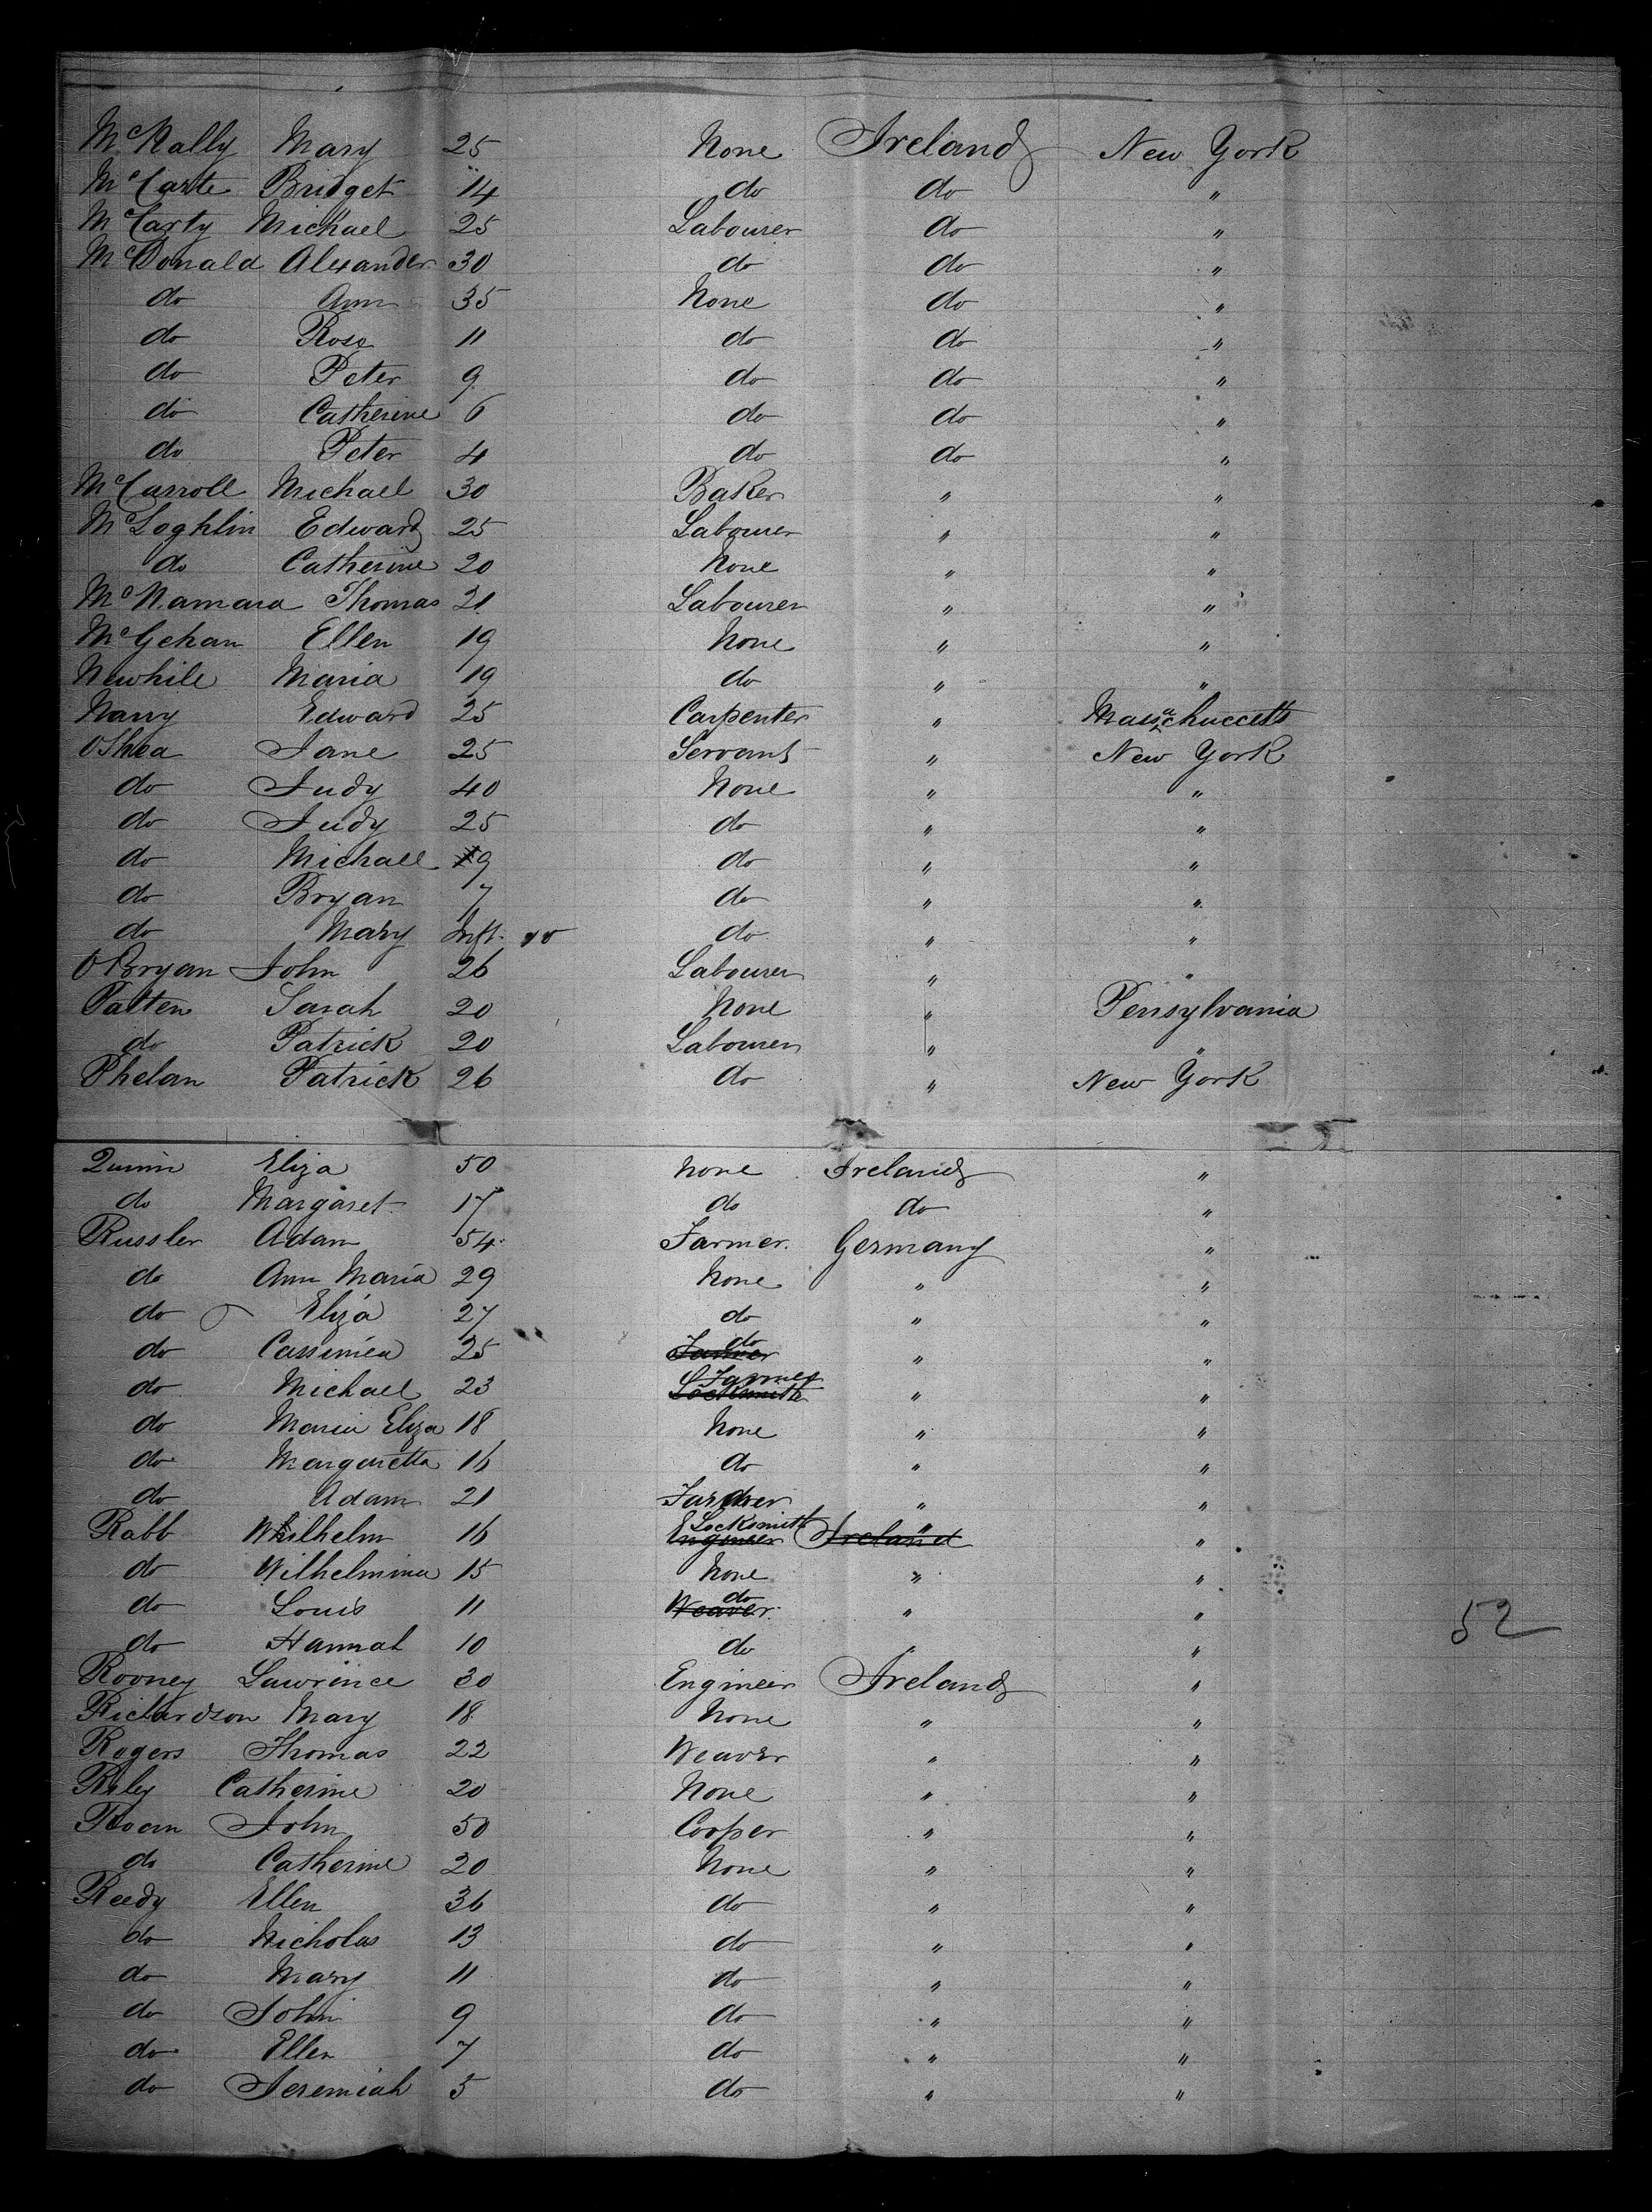 McNally Mary 25 None Ireland New York
McCarte Bridget 14 do do "
McCarty Michael 25 Labourer do "
McDonald Alexander 30 do do "
do Ann 35 None do "
do Rose 11 do do "
do Peter 9 do do "
do Catherine 6 do do "
do Peter 4 do do "
McCarroll Michael 30 Baker " "
McLoghlin Edward 25 Labourer " "
do Catherine 20 None " "
McNamara Thomas 21 Labourer " "
McGehan Ellen 19 None " "
Newhile Maria 19 do " "
Narry Edward 25 Carpenter " Massachuccetts
OShea Jane 25 Servant " New York
do Judy 40 None " "
do Judy 25 do " "
do Michael 9 do " "
do Bryan 7 do " "
do Mary Inft. do " "
OBryan John 26 Labourer " "
Patten Sarah 20 None " Pensylvania
do Patrick 20 Labourer " "
Phelan Patrick 26 do " New York
Quinn Eliza 50 None Ireland "
do Margaret 17 do do "
Russler Adam 54 Farmer Germany "
do Ann Maria 29 None " "
do Eliza 27 do " "
do 25 Farmer do " "
do Michael 23 Locksmith Farmer " "
do Maria Eliza 18 None " "
do Margaretta 16 do " "
do Adam 21 Farmer " "
Rabb Wilhelm 16 Engineer Locksmith Ireland " "
do Wilhelmina 15 None " "
do Louis 11 Weaver do " "
do Hannah 10 do " "
Rooney Lawrince 30 Engineer Ireland "
Richardson Mary 18 None " "
Rogers Thomas 22 Weaver " "
Riley Catherine 20 None " "
Roan John 50 Cooper " "
do Catherine 20 None " "
Reedy Ellen 36 do " "
do Nicholas 13 do " "
do Mary 11 do " "
do John 9 do " "
do Ellen 7 do " "
do Jeremiah 5 do " "
52